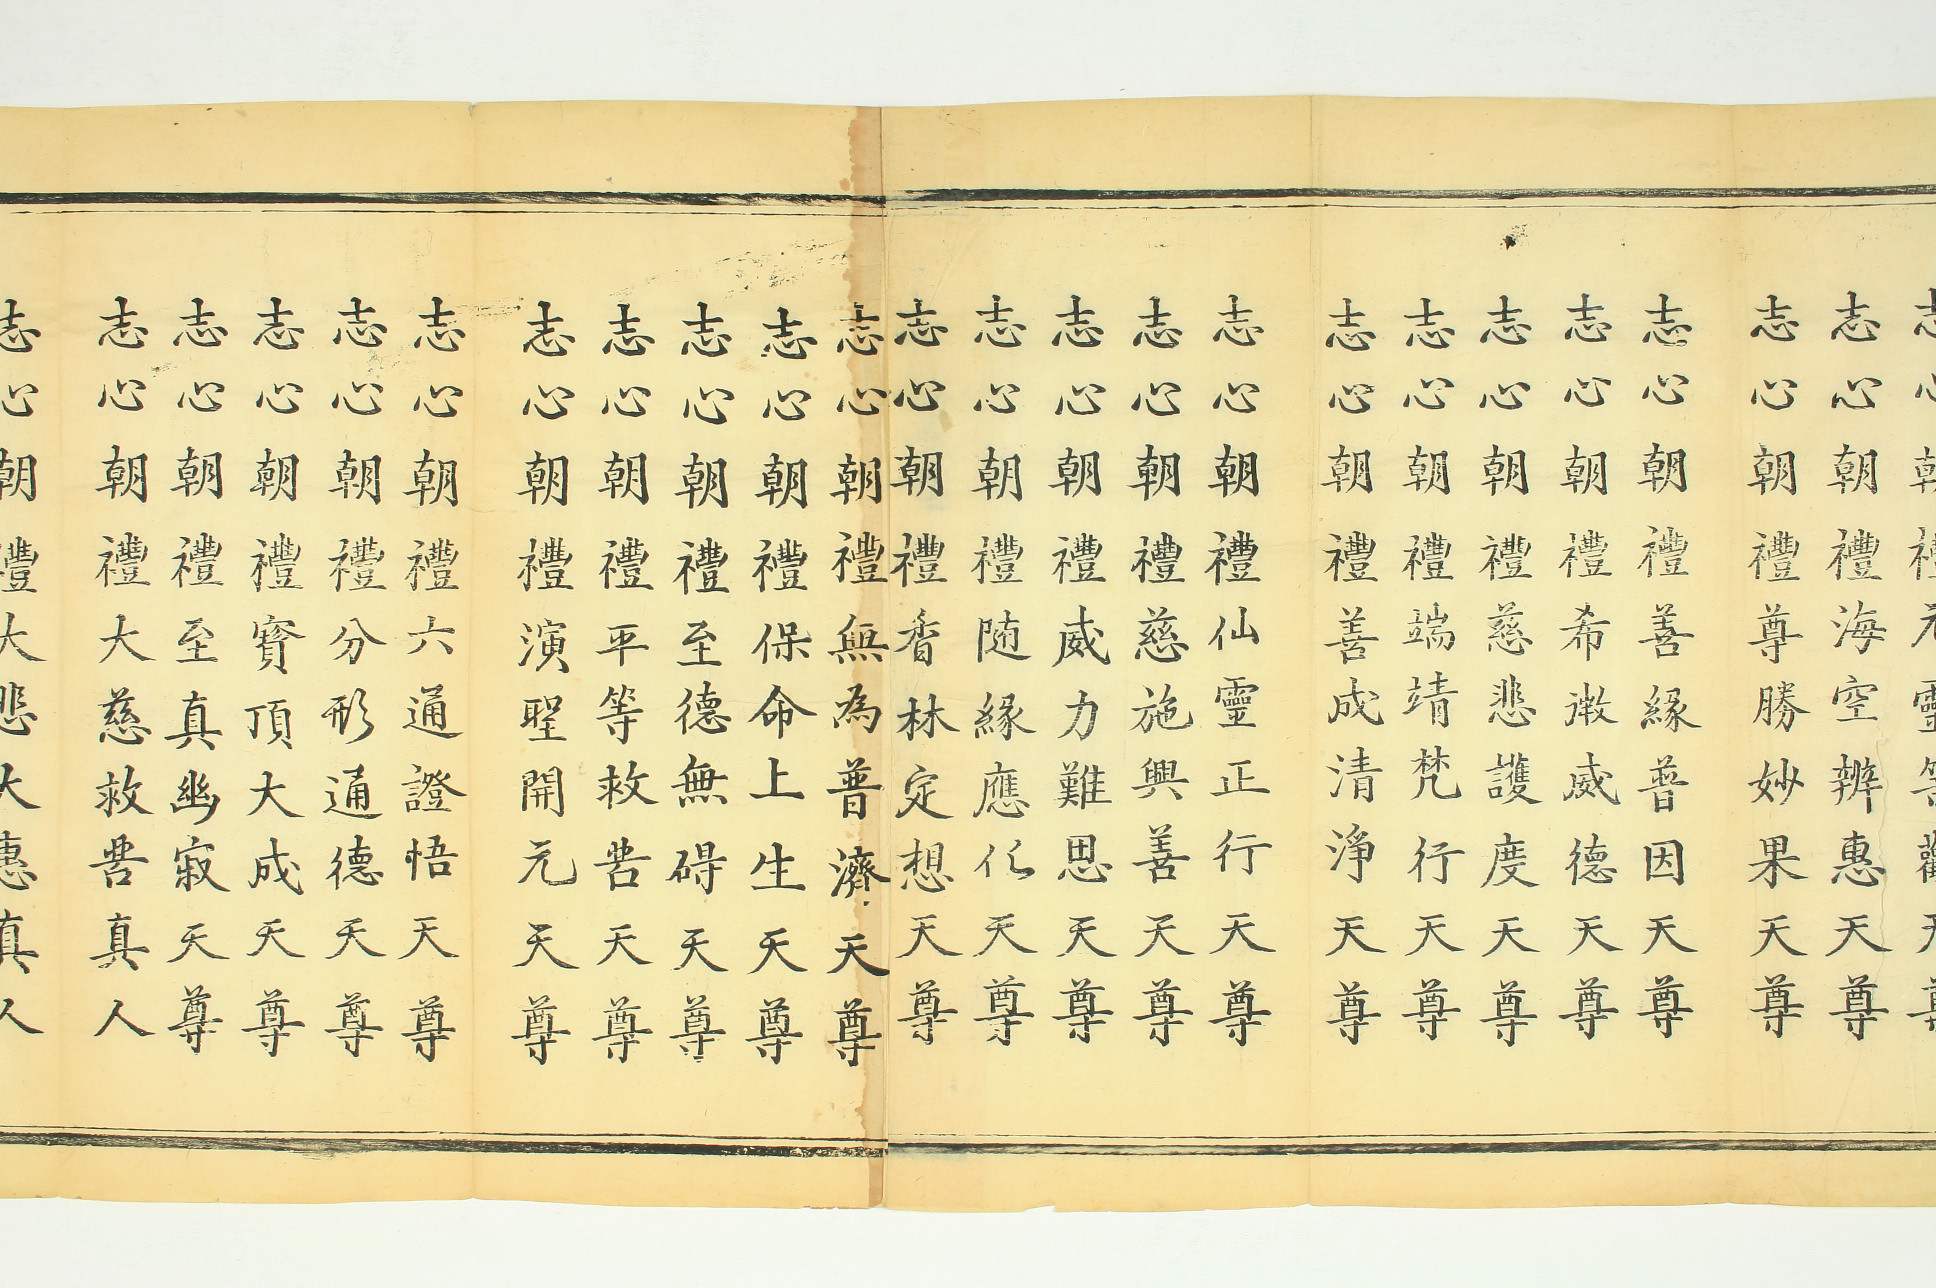 志心朝禮元靈
志心朝禮海空辨惠天尊
志心朝禮尊勝妙果天尊
志心朝禮善緣普因天尊
志心朝禮希微威德天尊
志心朝禮慈悲護度天尊
志心朝禮端靖梵行天尊
志心朝禮善成清淨天尊
志心朝禮仙靈正行天尊
志心朝禮慈施興善天尊
志心朝禮威力難思天尊
志心朝禮随緣應化天尊
志心朝禮香林定想天尊
志心朝禮無為普濟天尊
志心朝禮保命上生天尊
志心朝禮至德無碍天尊
志心朝禮平等救苦天尊
志心朝禮演聖開元天尊
志心朝禮六通證悟天尊
志心朝禮分形通德天尊
志心朝禮寶頂大成天尊
志心朝禮至真幽寂天尊
志心朝禮大慈救苦真人
志心朝禮大悲大惠真人